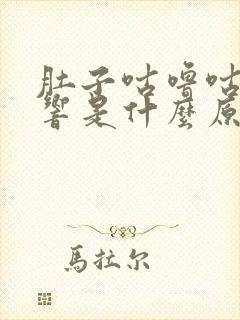 肚子咕嚕咕
響是什麼原
馬拉尔